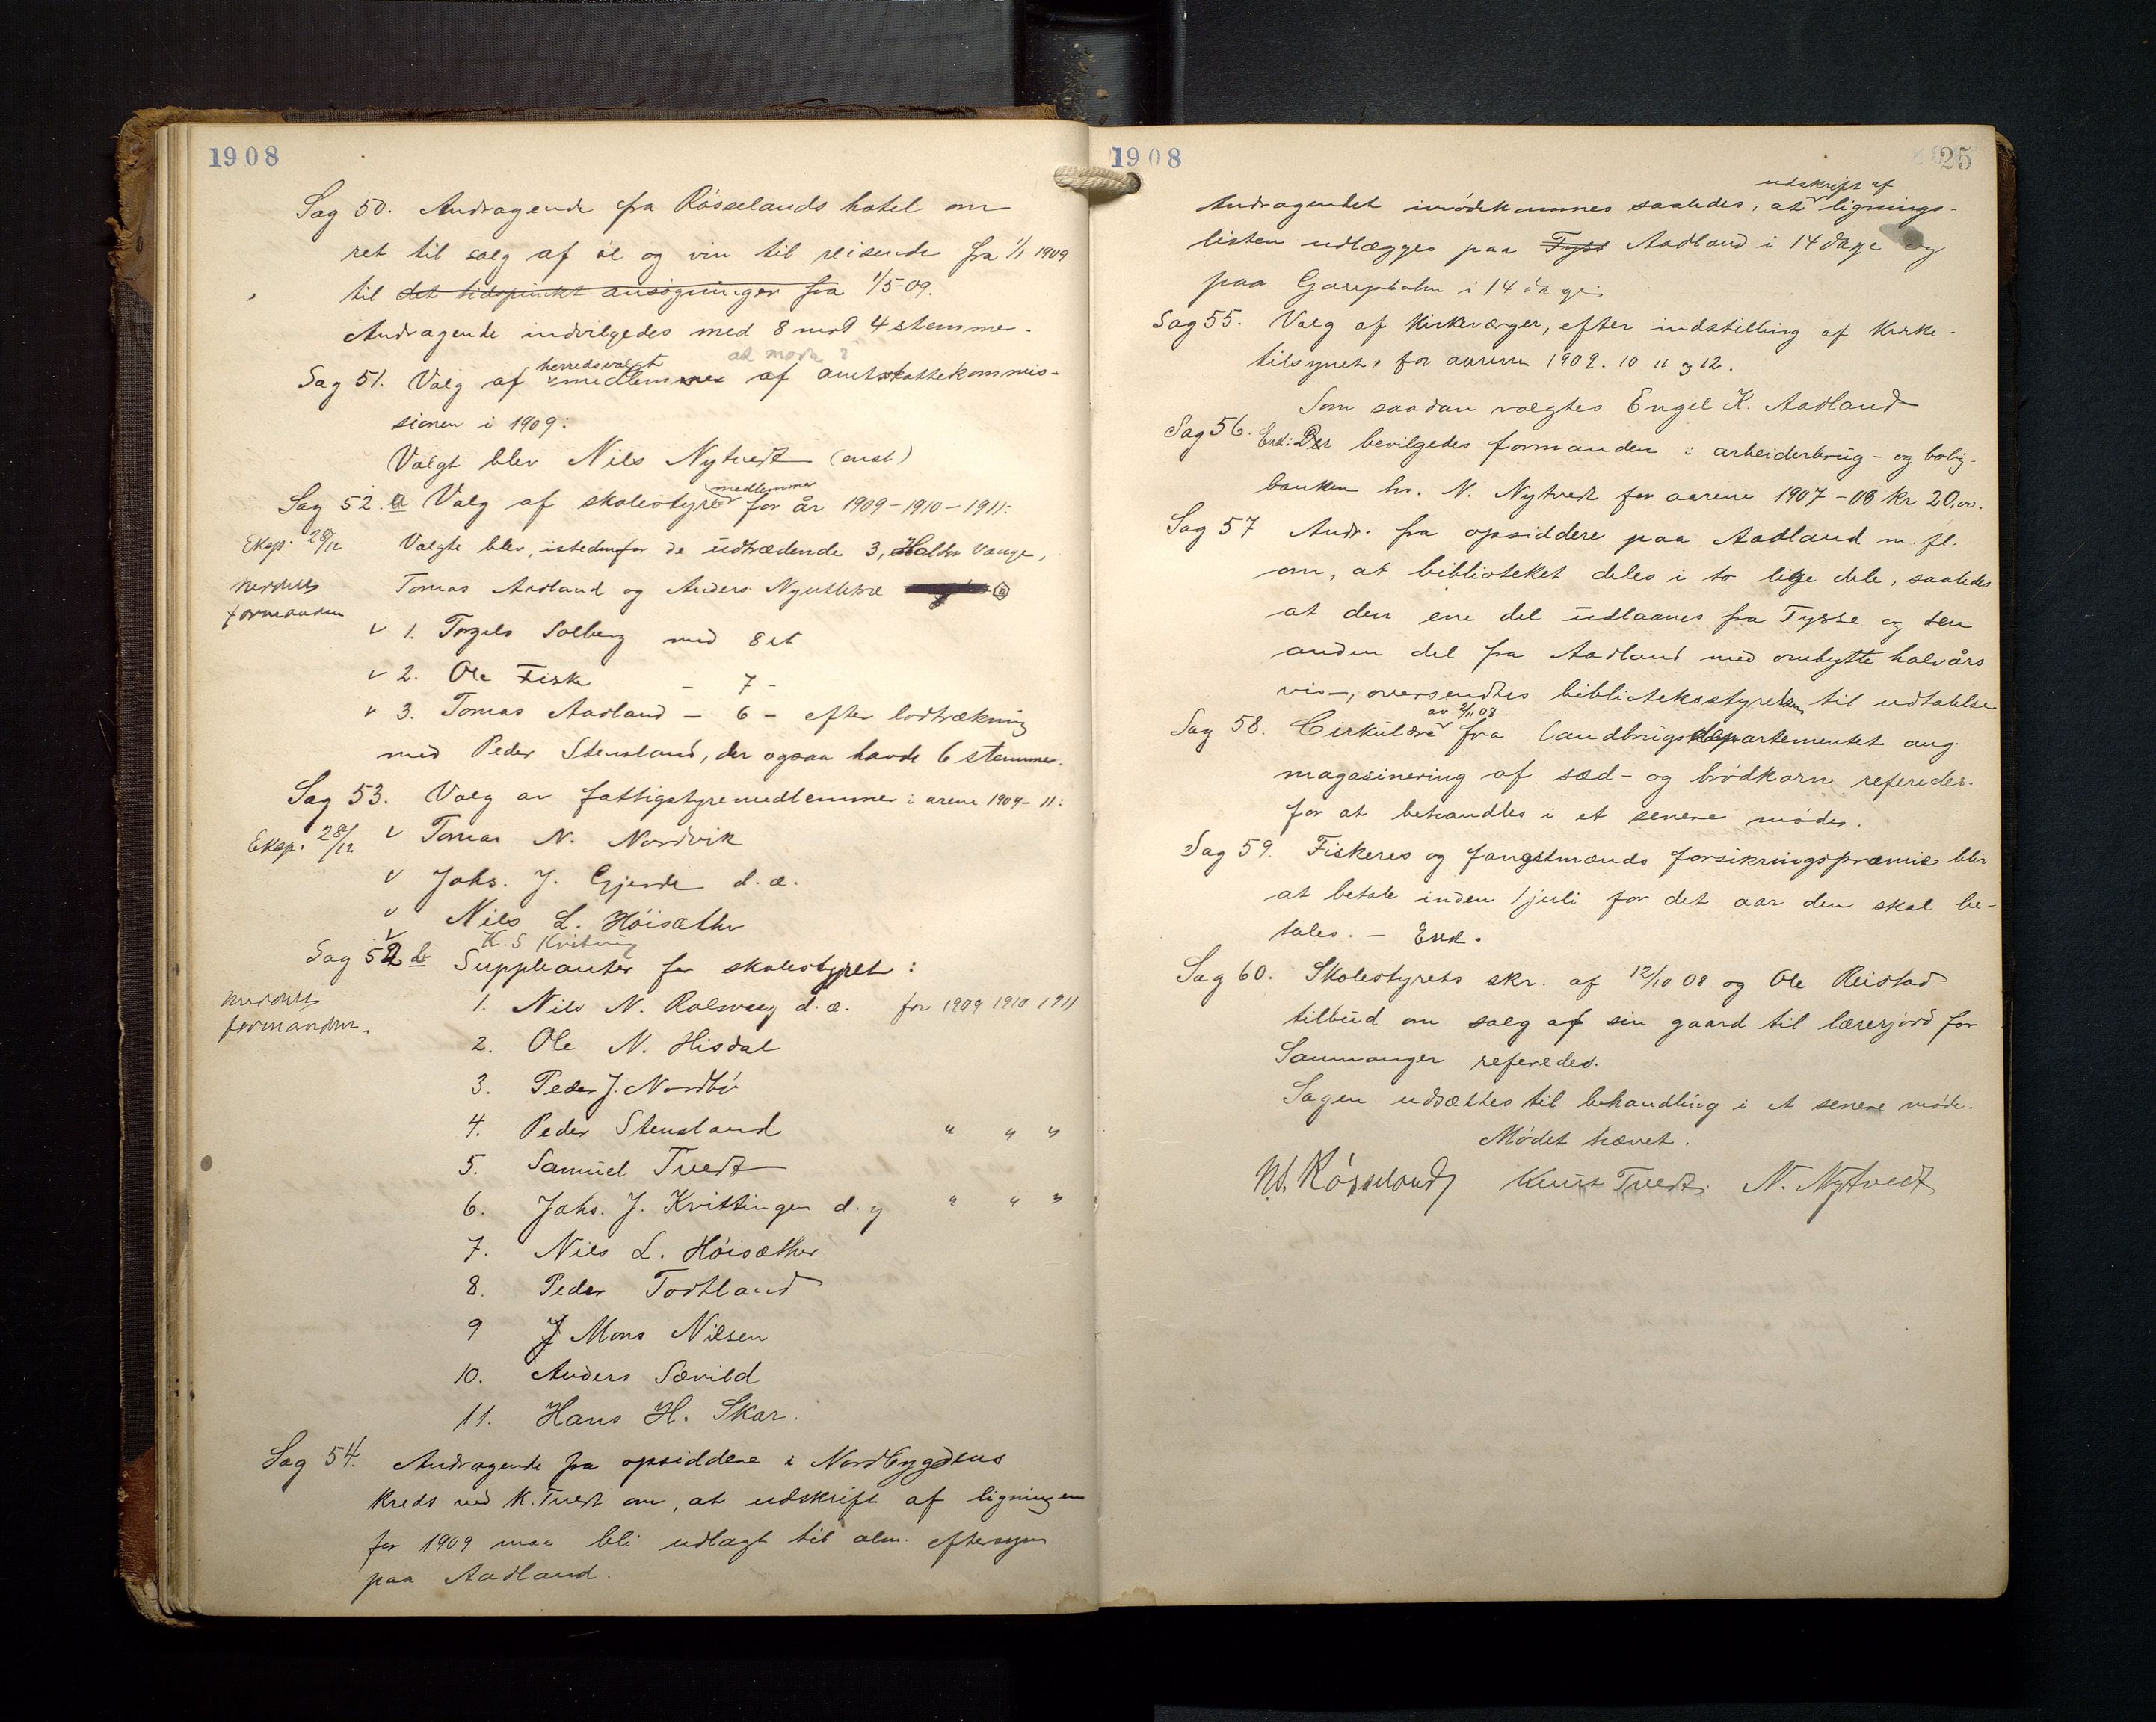 1908
Sag 50. Andragende fra Røsselands hotel om
ret til salg af øl og vin til reisende fra 1/1 1909
til det tidspunkt ansøgninger fra 1/5 09.
Andragende indvilgedes med 8 mod 4 stemmer.
Sag 51. Valg af herredsvalgt medlemmer af amtskattekommis-
sionen i 1909:
Valgt blev Nils Nytvedt (enst)
Sag 52. a Valg af skolestyremedlemmer for år 1909-1910-1911:
Eksp. 28/12 Valgte blev, istedenfor de udtrædende 3, Haldor Vange,
meddelt
formanden
Tomas Aadland og Anders Nyutletre
v 1. Torgels Solberg med 8 st
v 2. Ole Fisk - 7 -
v 3. Tomas Aadland - 6 - efter lodtrækning
med Peder Stensland, der ogsaa havde 6 stemmer.
Sag 53. Valg av fattigstyremedlemmer i arene 1909-11:
Eksp. 28/12 v Tomas N. Nordvik
v Johs. J. Gjerde d.æ.
v Nils L. Høisæther
v K. S Kvitning
Sag 52 b Suppleanter for skolestyret:
meddelt
formanden.
1. Nils N. Rolsvaag d.æ. for 1909 1910 1911
2. Ole N. Hisdal
3. Peder J. Nordbø
4. Peder Stensland " " "
5. Samuel Tvedt
6. Johs. J. Kvittingen d.y " " "
7. Nils L. Høisæther
8. Peder Todtland
9 Mons Nilsen
10. Anders Sævild
11. Hans H. Skar.
Sag 54. Andragende fra opsiddere i Nordbygdens
kreds ved K. Tvedt om, at udskrift af ligningen
for 1909 maa bli udlagt til alm. eftersyn
paa Aadland.
1908
25
Andragendet imødekommes saaledes, at udskrift af lignings-
listen udlægges paa Tyss Aadland i 14 dage og
paa Garnpholm i 14 dage
Sag 55. Valg af kirkeværger, efter indstilling af kirke-
tilsynet, for aarene 1909. 10 11 og 12.
Som saadan valgtes Engel K. Aadland
Sag 56. Enst: Der bevilgedes formanden i arbeiderbrug- og bolig-
banken hr. N. Nytvedt for aarene 1907-08 kr 20,00.
Sag 57 Andr. fra opsiddere paa Aadland m. fl.
om, at biblioteket deles i to lige dele, saaledes
at den ene del udlaanes fra Tysse og den
anden del fra Aadland med ombytte halvårs
vis-, oversendtes biblioteksstyret til udtalelse
Sag 58. Cirkulære av 2/11 08 fra landbrugsdepartementet ang.
magasinering af sæd- og brødkorn referedes.
for at behandles i et senere møde.
Sag 59. Fiskeres og fangstmænds forsikringspræmie blir
at betale inden 1 juli for det aar den skal be-
tales. - Enst.
Sag 60. Skolestyrets skr. af 12/10 08 og Ole Reistad
tilbud om salg af sin gaard til lærerjord for
Samnanger referedes.
Sagen udsættes til behandling i et senere møde.
Mødet hævet.
N. Røsseland Knut Tvedt. N. Nytvedt